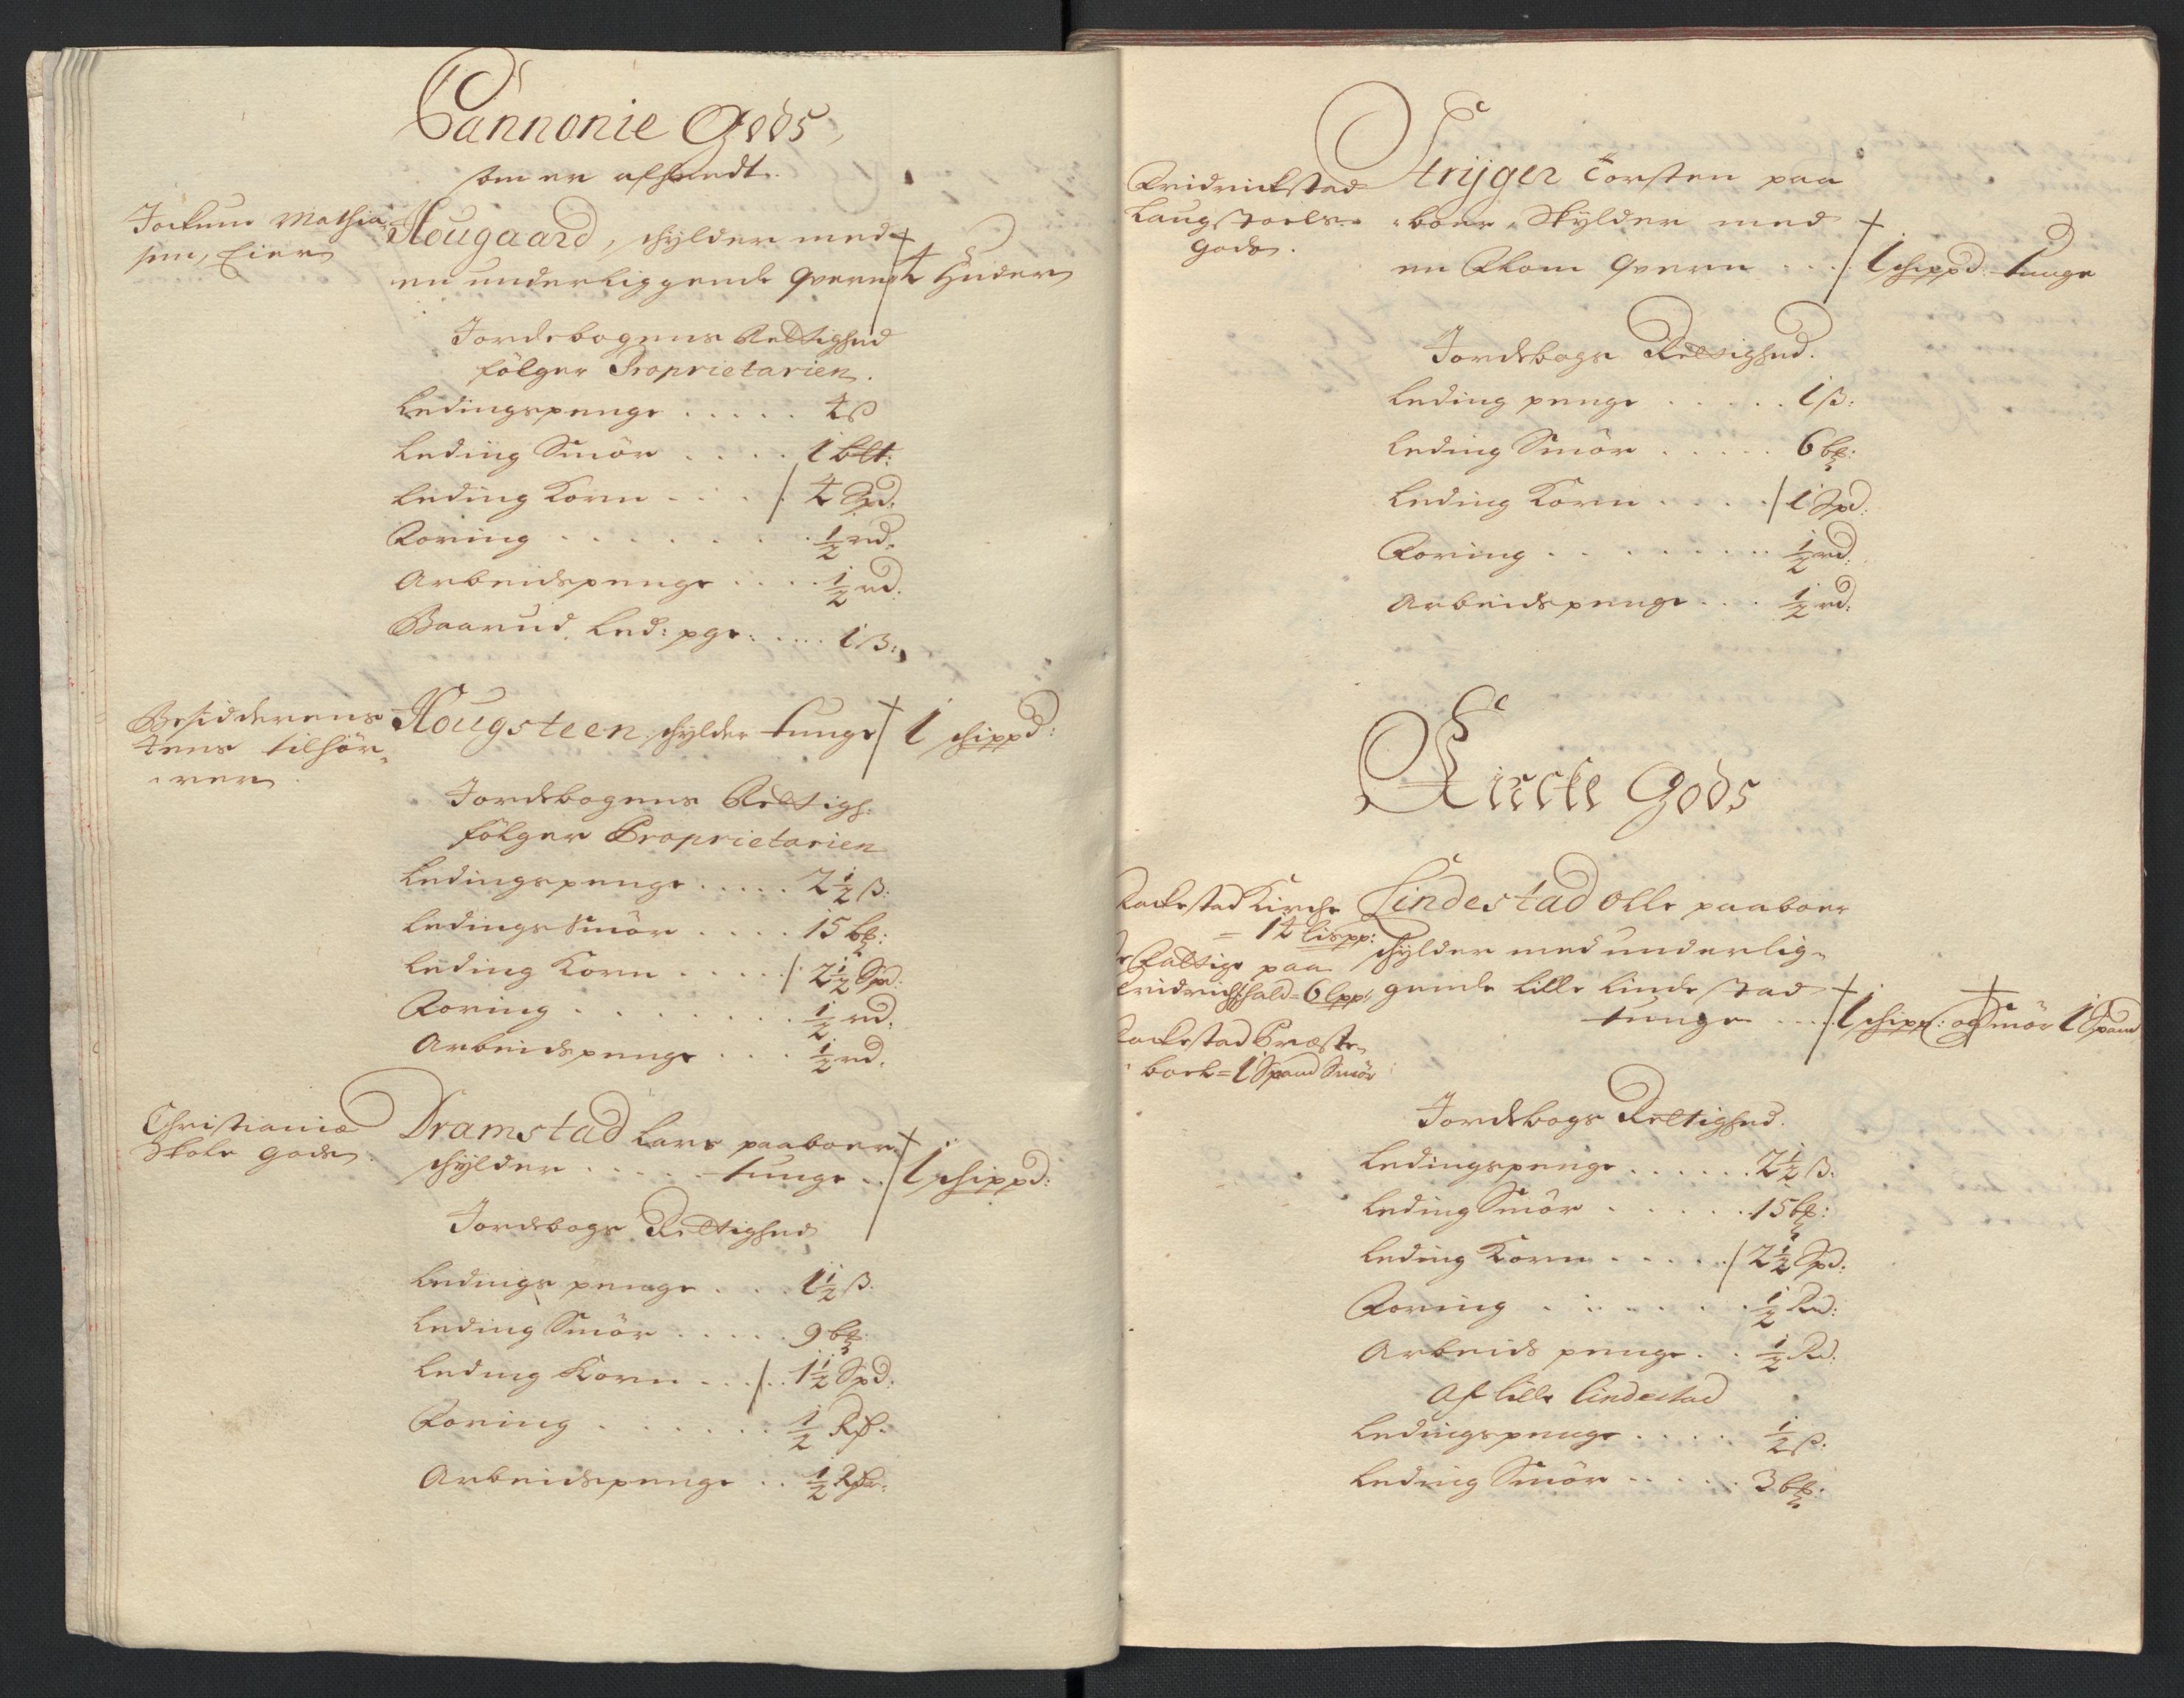 Cannonie Gods,
som er afhendt.
Jockum Mathia
sen, Eier
Hougaard, schylder med
en underliggende Qvern 4 Huder
Jordebogens Rettighed
følger Proprietarien.
Ledingspenge . . . . . 4 ß
Leding Smör . . . . 1 blt:
Leding Korn . . . . 4 Spd:
Foring . . . . . . . ½ rd:
Arbeidspenge . . . . ½ rd:
Baarud Led: pge: . . . . 1 ß:
Besidderens
tens tilhör-
rer
Hougsteen, schylder tunge 1 schippd:
Jordebogens Rettigh:
følger Proprietarien
Ledingspenge . . . . . 2½ ß:
Ledings Smör . . . . 15 bß:
Leding Korn . . . . . 2½ Spd:
Foring . . . . . . . . ½ rd:
Arbeidspenge . . . . ½ rd:
Christiania
Skole gods
Dramstad Lars paaboer
schylder . . . . . tunge . . 1 schippd:
Jordebogs Rettighed
Ledings penge . . . 1½ ß:
Leding Smör . . . . . 9 bß:
Leding Korn . . . . 1½ Spd:
Foring . . . . . . ½ Rd:
Arbeidspenge . . ½ Rdr:
Fridrickstad
Laugstoels
gods.
Strÿger Torsten paa
boer, Skylder med
en Flom Qvern . . . . 1 schippd: tunge
Jordebogs Rettighed.
Leding penge . . . . . 1 ß:
Leding Smör . . . . . 6 bß:
Leding Korn . . . . . 1 Spd:
Foring . . . . . . . . ½ rd:
Arbeidspenge . . . ½ rd:
Kircke Gods
Rackestad Kirche
= 14 lispp:
de Fattige paa
Fridrichshald = 6 lpp:
Rackestad Præste
boel = 1 Spand Smör
Lindestad Olle paaboer
schylder med underlig-
gende Lille Lindestad
tunge . . . . 1 schipp: og Smör 1 Spand
Jordebogs Rettighed.
Ledingspenge . . . . . . 2½ ß:
Leding Smör . . . . . . 15 bß:
Leding Korn . . . . . . 2½ Spd:
Foring . . . . . . . ½ Rd:
Arbeids penge . . ½ Rd:
Af Lille Lindestad
Ledingspenge . . . . ½ ß:
Leding Smör . . . . . 3 bß: